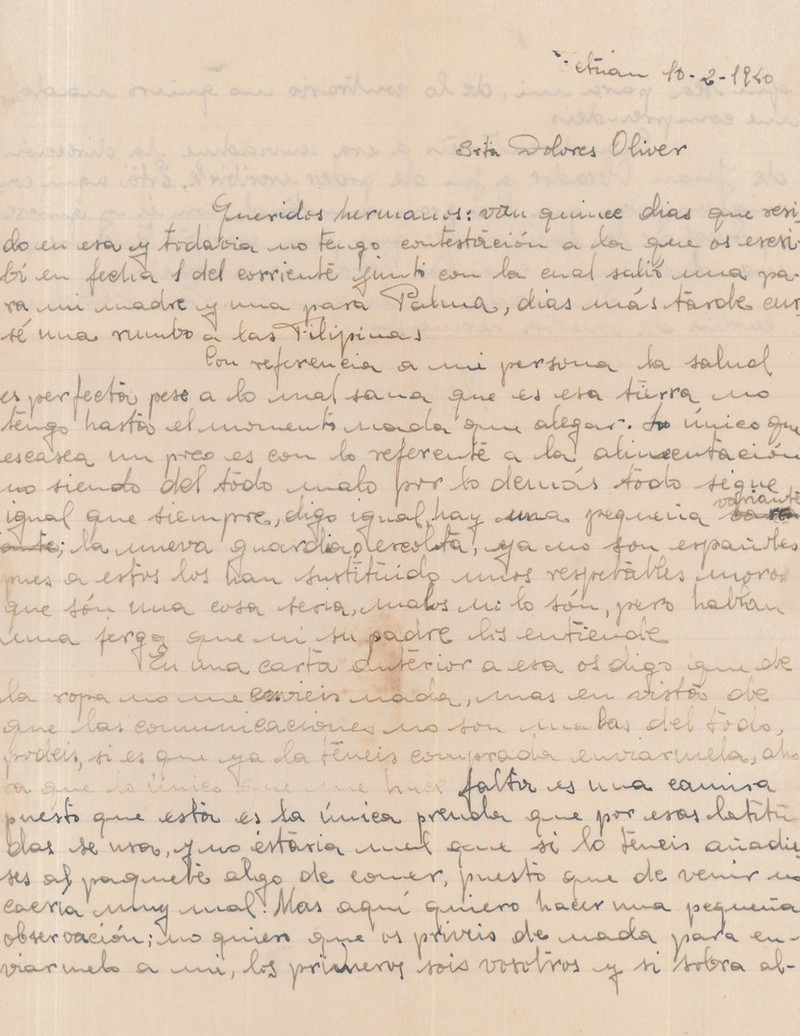 Tetuan 10-2-1940
Srta Dolores Oliver
Queridos hermanos: van quince dias que resi-
do en esa y todavia no tengo contestación a la que os escri-
bí en fecha 1 del corriente junto con la cual salió una pa-
ra mi madre y una para Palma, dias más tarde cur
sé una rumbo a las Filipinas
Con referencia a mi persona la salud
es perfecta pese a lo mal sana que es esa tierra no
tengo hasta el momento nada que alegar. Lo único que
escasea un poco es con lo referente a la alimentación
no siendo del todo malo por lo demás todo sigue
igual que siempre, digo igual, hay una pequeña variante
; la nueva guardia, o escolta, ya no son españoles
pues a estos los han sustituido unos respetables moros
que són una cosa seria, malos ni lo són, pero hablan
una jerga que ni su padre lis entiende
En una carta anterior a esa os digo que de
la ropa no me envieis nada, mas en vista de
que las comunicaciones no son malas del todo,
podeis, si es que ya la teneis comprada enviarmela, aho
ra que lo único que me hace falta es una camisa
puesto que esta es la única prenda que por esas latitu
das se usa, y no estaria mal que si lo teneis añadie
ses al paquete algo de comer, puesto que de venir no
caeria muy mal. Mas aquí quiero hacer una pequeña
observación; no quiero que os priveis de nada para en-
viarmelo a mi, los primeros sois vosotros y si sobra al-